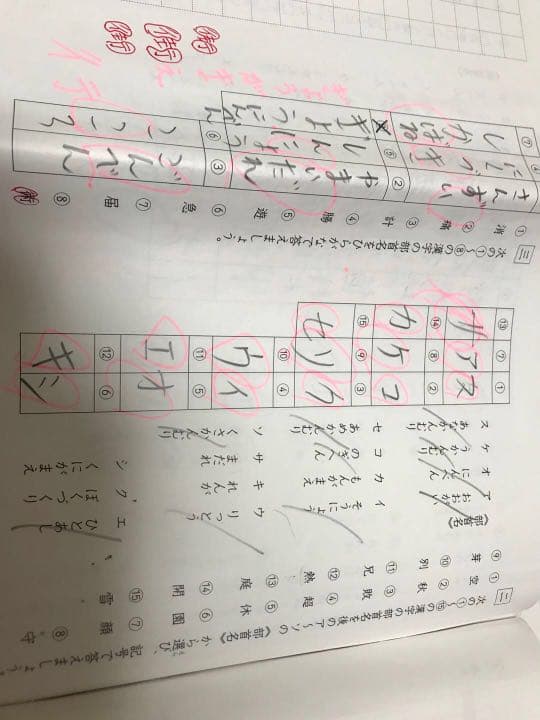 二 次の①〜⑮の漢字の部首名を後のア〜ソの《部首名》から選び、記号で答えましょう。
① 空 ② 秋 ③ 敗 ④ 超 ⑤ 休 ⑥ 園 ⑦ 顔 ⑧ 守
⑨ 芽 ⑩ 別 ⑪ 兄 ⑫ 熱 ⑬ 庭 ⑭ 開 ⑮ 雪
《部首名》
ア おおがい イ そうにょう ウ りっとう エ ひとあし
オ にんべん カ もんがまえ キ れんが ク ぼくづくり
ケ うかんむり コ のぎへん サ まだれ シ くにがまえ
ス あなかんむり セ あめかんむり ソ くさかんむり
① ス ② コ ③ ク ④ イ ⑤ オ ⑥ シ
⑦ ア ⑧ ケ ⑨ ソ ⑩ ウ ⑪ エ ⑫ キ
⑬ サ ⑭ カ ⑮ セ
三 次の①〜⑧の漢字の部首名をひらがなで答えましょう。
① ② 痛 ③ 計 ④ 勝 ⑤ 遊 ⑥ 急 ⑦ 届 ⑧ 街
さんずい ② やまいだれ ③ ごんべん
④ にくづき ⑤ しんにょう ⑥ こころ
⑦ しかばね ぎょうにんべん
ぎょうがまえ
街 街 街